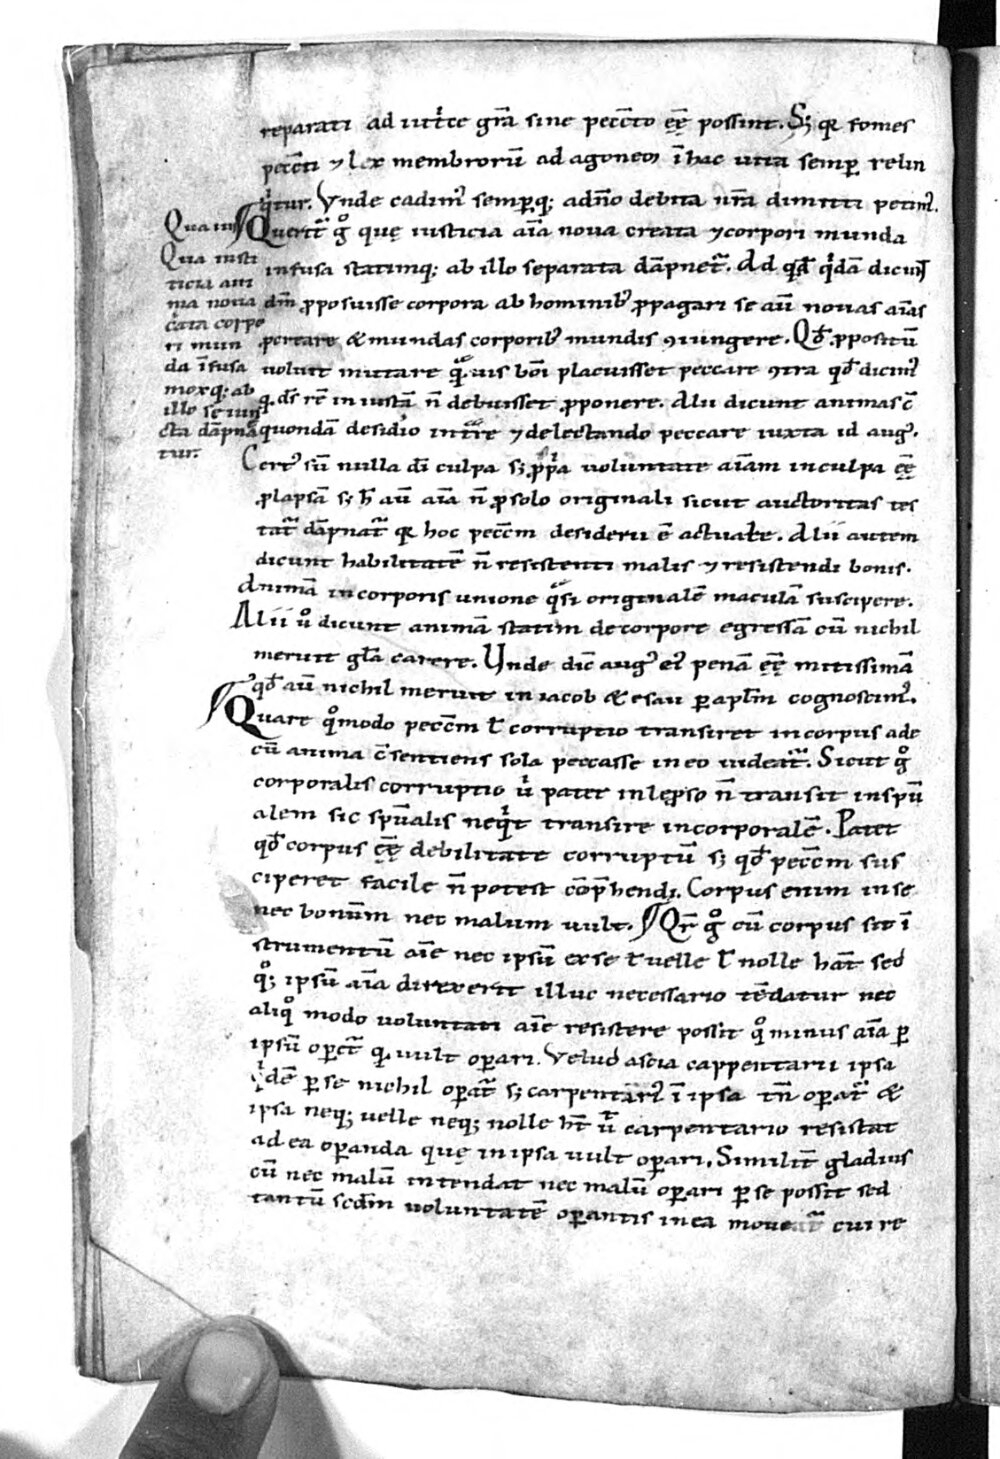 reparati ad uirtutẽ gr̃a sine pecc̃to ee̅ possint. S; qr fomes
pecc̃ti ⁊ lex membrorũ ad agoneʒ ĩ hac uita semp̲ relin
q̇tur. Vnde cadim᷒ semp̲q; ad dñ̅o debita nr̃a dimitti petim᷒.
Querit᷑ g̊ quę iusticia aĩa noua creata ⁊ corpori munda
infusa statimq; ab illo separata dãpnet᷑. Ad qd̃ q̇dã dicunt
dm̃ p̲posuisse corpora ab hominib᷒ p̲pagari se aũ nouas aĩas
p̲creare & mundas corporib᷒ mundis ꝯiungere. Qd̃ p̲positũ
noluit mutare q̃uis boĩ placuisset peccare ꝯtra qd̃ dicim᷒
q. ds̃ rẽ in iustã ñ debuisset p̲ponere. Alii dicunt animas c̃
quondã desidio intr̃re ⁊ delectando peccare iuxta id aug᷒.
Cert᷒ sũ nulla dĩ culpa s; p̲p̍a uoluntate aĩam in culpa ee̅
p̲lapsã s; h̃ aũ aĩa ñ p̲ solo originali sicut auctoritas tes
tat᷑ dãpnat᷑ qr hoc pecc̃m desiderii ẽ actuale. Alii autem
dicunt habilitatẽ ñ resistenti malis ⁊ resistendi bonis.
Animã in corporis unione q̃si originalẽ maculã suscipere.
Alii ů dicunt animã statim de corpore egressã cũ nichil
meruit gl̃a carere. Unde dic̃ aug᷒ ei᷒ penã ee̅ mitissimã
qd̃ aũ nichil meruit in iacob & esau p̲ apl̃m cognoscim᷒.
Quare q̊modo pecc̃m ł corruptio transiret in corpus ade
cũ anima c̃ sentiens sola peccasse in eo uideat᷑. Sicut g̊
corporalis corruptio u̇ patet in lep̲so ñ transit in spũ
alem sic spũalis neq̇t transire in corporalẽ. Patet
qd̃ corpus ee̅ debilitate corruptũ s; qd̃ pecc̃m sus
ciperet facile ñ potest cõp̃hendi. Corpus enim in se
nec bonũm nec malum uult. Qr̃ g̊ cũ corpus sit ĩ
strumentũ aĩe nec ipsũ ex se ł uelle ł nolle hat̃ sed
q̊; ipsũ aĩa direxerit illuc necessario tẽdatur nec
aliq̊ modo uoluntati aĩe resistere possit q̊ minus aĩa p̲
ipsũ op̲et᷑ q. uult op̲ari. Velud ascia cappentarii ipsa
q̇dẽ p̲ se nichil op̲at᷑ s; carpentari᷒ ĩ ipsa tñ op̲at᷑ &
ipsa neq; uelle neq; nolle ht̃ ut̃ carpentario resistat
ad ea op̲anda quę in ipsa uult op̲ari. Similit̃ gladius
cũ nec malũ intendat nec malũ op̲ari p̲ se possit sed
tantũ scdm̃ uoluntatẽ op̲antis in ea moueat᷑ cui re
Qua ius
Qua iusti
ticia ani
ma noua
c̃ata corpo
ri mun
da ĩfusa
moxq; ab
illo se iun
cta dãpna
tur.